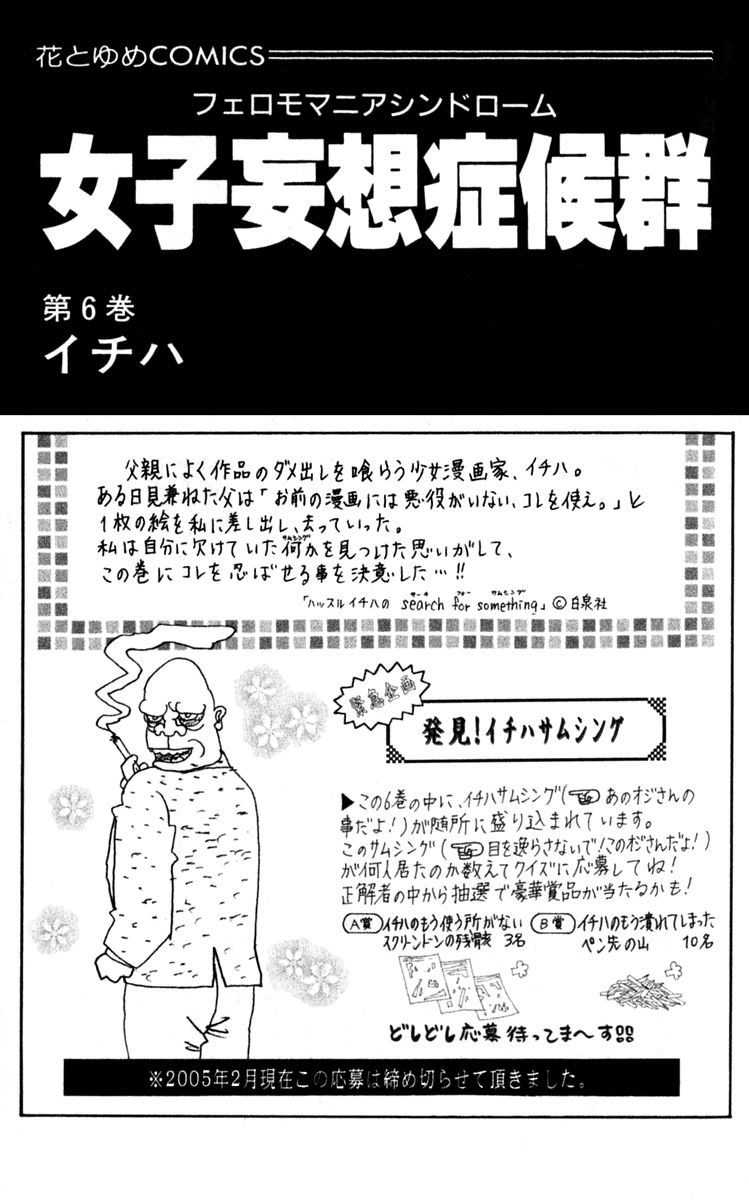 花とゆめCOMICS
フェロモマニアシンドローム
女子妄想症候群
第6巻
イチハ
父親によく作品のダメ出しを喰らう少女漫画家、イチハ。
ある日見兼ねた父は「お前の漫画には悪役がいない、コレを使え。」と
1枚の絵を私に差し出し、去っていった。
サムシング
私は自分に欠けていた何かを見つけた思いがして、
この巻にコレを忍ばせる事を決意した…!!
サーチ フォー サムシング
「ハッスルイチハの search for something」©白泉社
緊急企画
発見!イチハサムシング
▶この6巻の中に、イチハサムシング(☜あのオジさんの
事だよ!)が随所に盛り込まれています。
このサムシング(☜目を逸らさないで!このオジさんだよ!)
が何人居たのか数えてクイズに応募してね!
正解者の中から抽選で豪華賞品が当たるかも!
A賞 イチハのもう使う所がない
スクリーントーンの残骸 3名
B賞 イチハのもう潰れてしまった
ペン先の山 10名
どしどし応募待ってま〜す!!
※2005年2月現在この応募は締め切らせて頂きました。